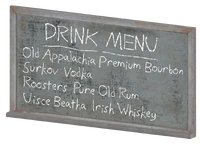 DRINK MENU
Old Appalachia Premium Bourbon
Surkov Vodka
Roosters Pure Old Rum
Uisce Beatha Irish Whiskey